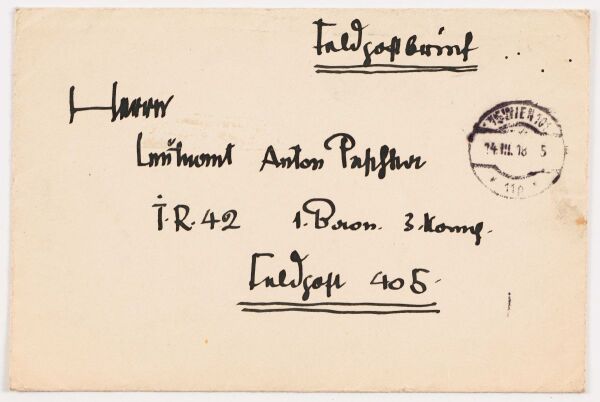 Feldpostbrief
Herrn
Leutnant Anton Peschka
I.R. 42 1. Baon. 3. Komp.
Feldpost 405.
WIEN
14.III.18 5